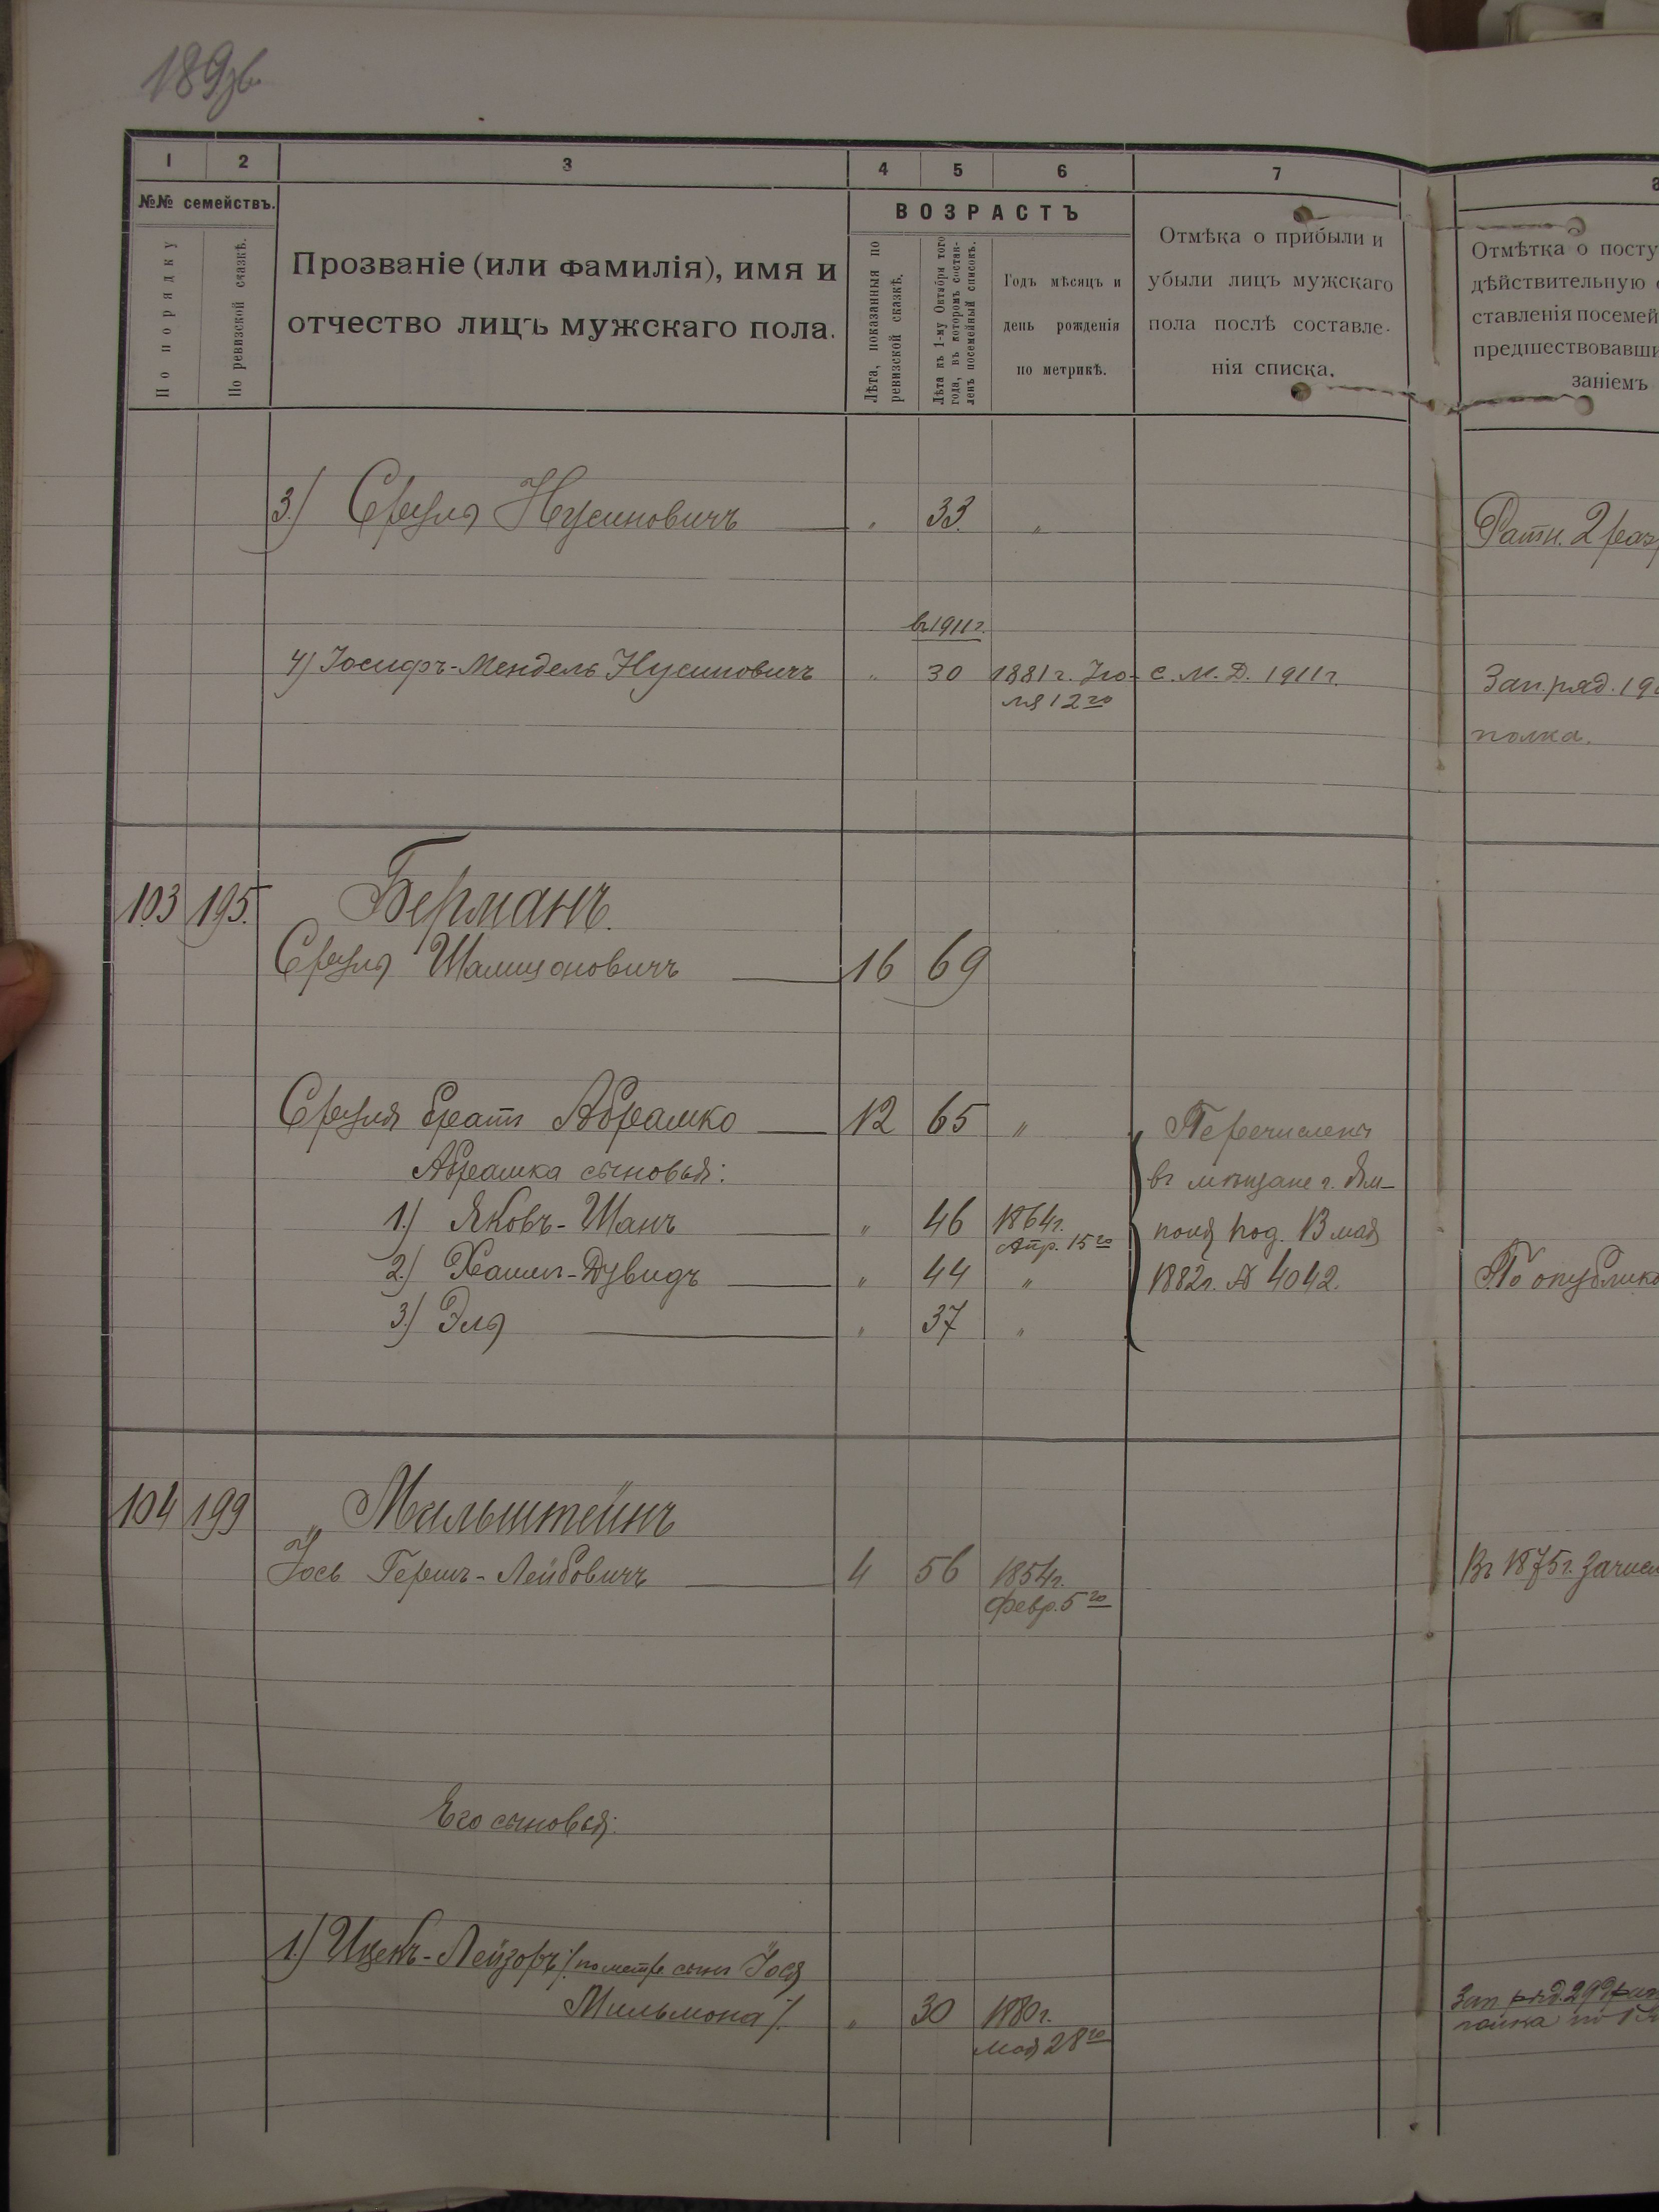 189об.
1 2 3 4 5 6 7
№№ семействъ.
По порядку
По ревизской сказкѣ.
Прозваніе (или фамилія), имя и
отчество лицъ мужскаго пола.
ВОЗРАСТЪ
Лѣта, показанныя по
ревизской сказкѣ.
Лѣта къ 1-му Октября того
года, въ которомъ состав-
ленъ посемейный списокъ.
Годъ мѣсяцъ и
день рожденія
по метрикѣ.
Отмѣка о прибыли и
убыли лицъ мужскаго
пола послѣ составле-
нія списка.
Отмѣтка о посту
дѣйствительную
ставленія посемей
предшествовавши
заніемъ
3.) Сруля Нусиновичъ " 33. "
Ратн. 2 раз
въ 1911 г.
4) Іосифъ-Мендель Нусиновичъ " 30 1881 г. Ію- С. М. Д. 1911 г.
ля 12го
Зап. ряд. 19
полка.
103 195. Берманъ.
Сруля Шамшоновичъ 16 69
Сруля братъ Абрамко 12 65 " Перечислены
Абрамка сыновья:
въ мѣщане г. Ям-
1.) Яковъ-Шанъ " 46 1864г.
Апр. 15го
поля под. 13 мая
2.) Хаим-Дувидъ " 44 " 1882г. № 4042.
По опублико
3.) Эля " 37 "
104 199 Мальштейнъ
Йось Герш-Лейбовичъ 4 56 1854г.
Февр. 5го
Въ 1875г. зачис
Его сыновья:
1.) Ицекъ-Лейзоръ /: по метр сынъ Йося
Мильмона :/. " 30 1880г.
мая 28го
Зап ряд. 29